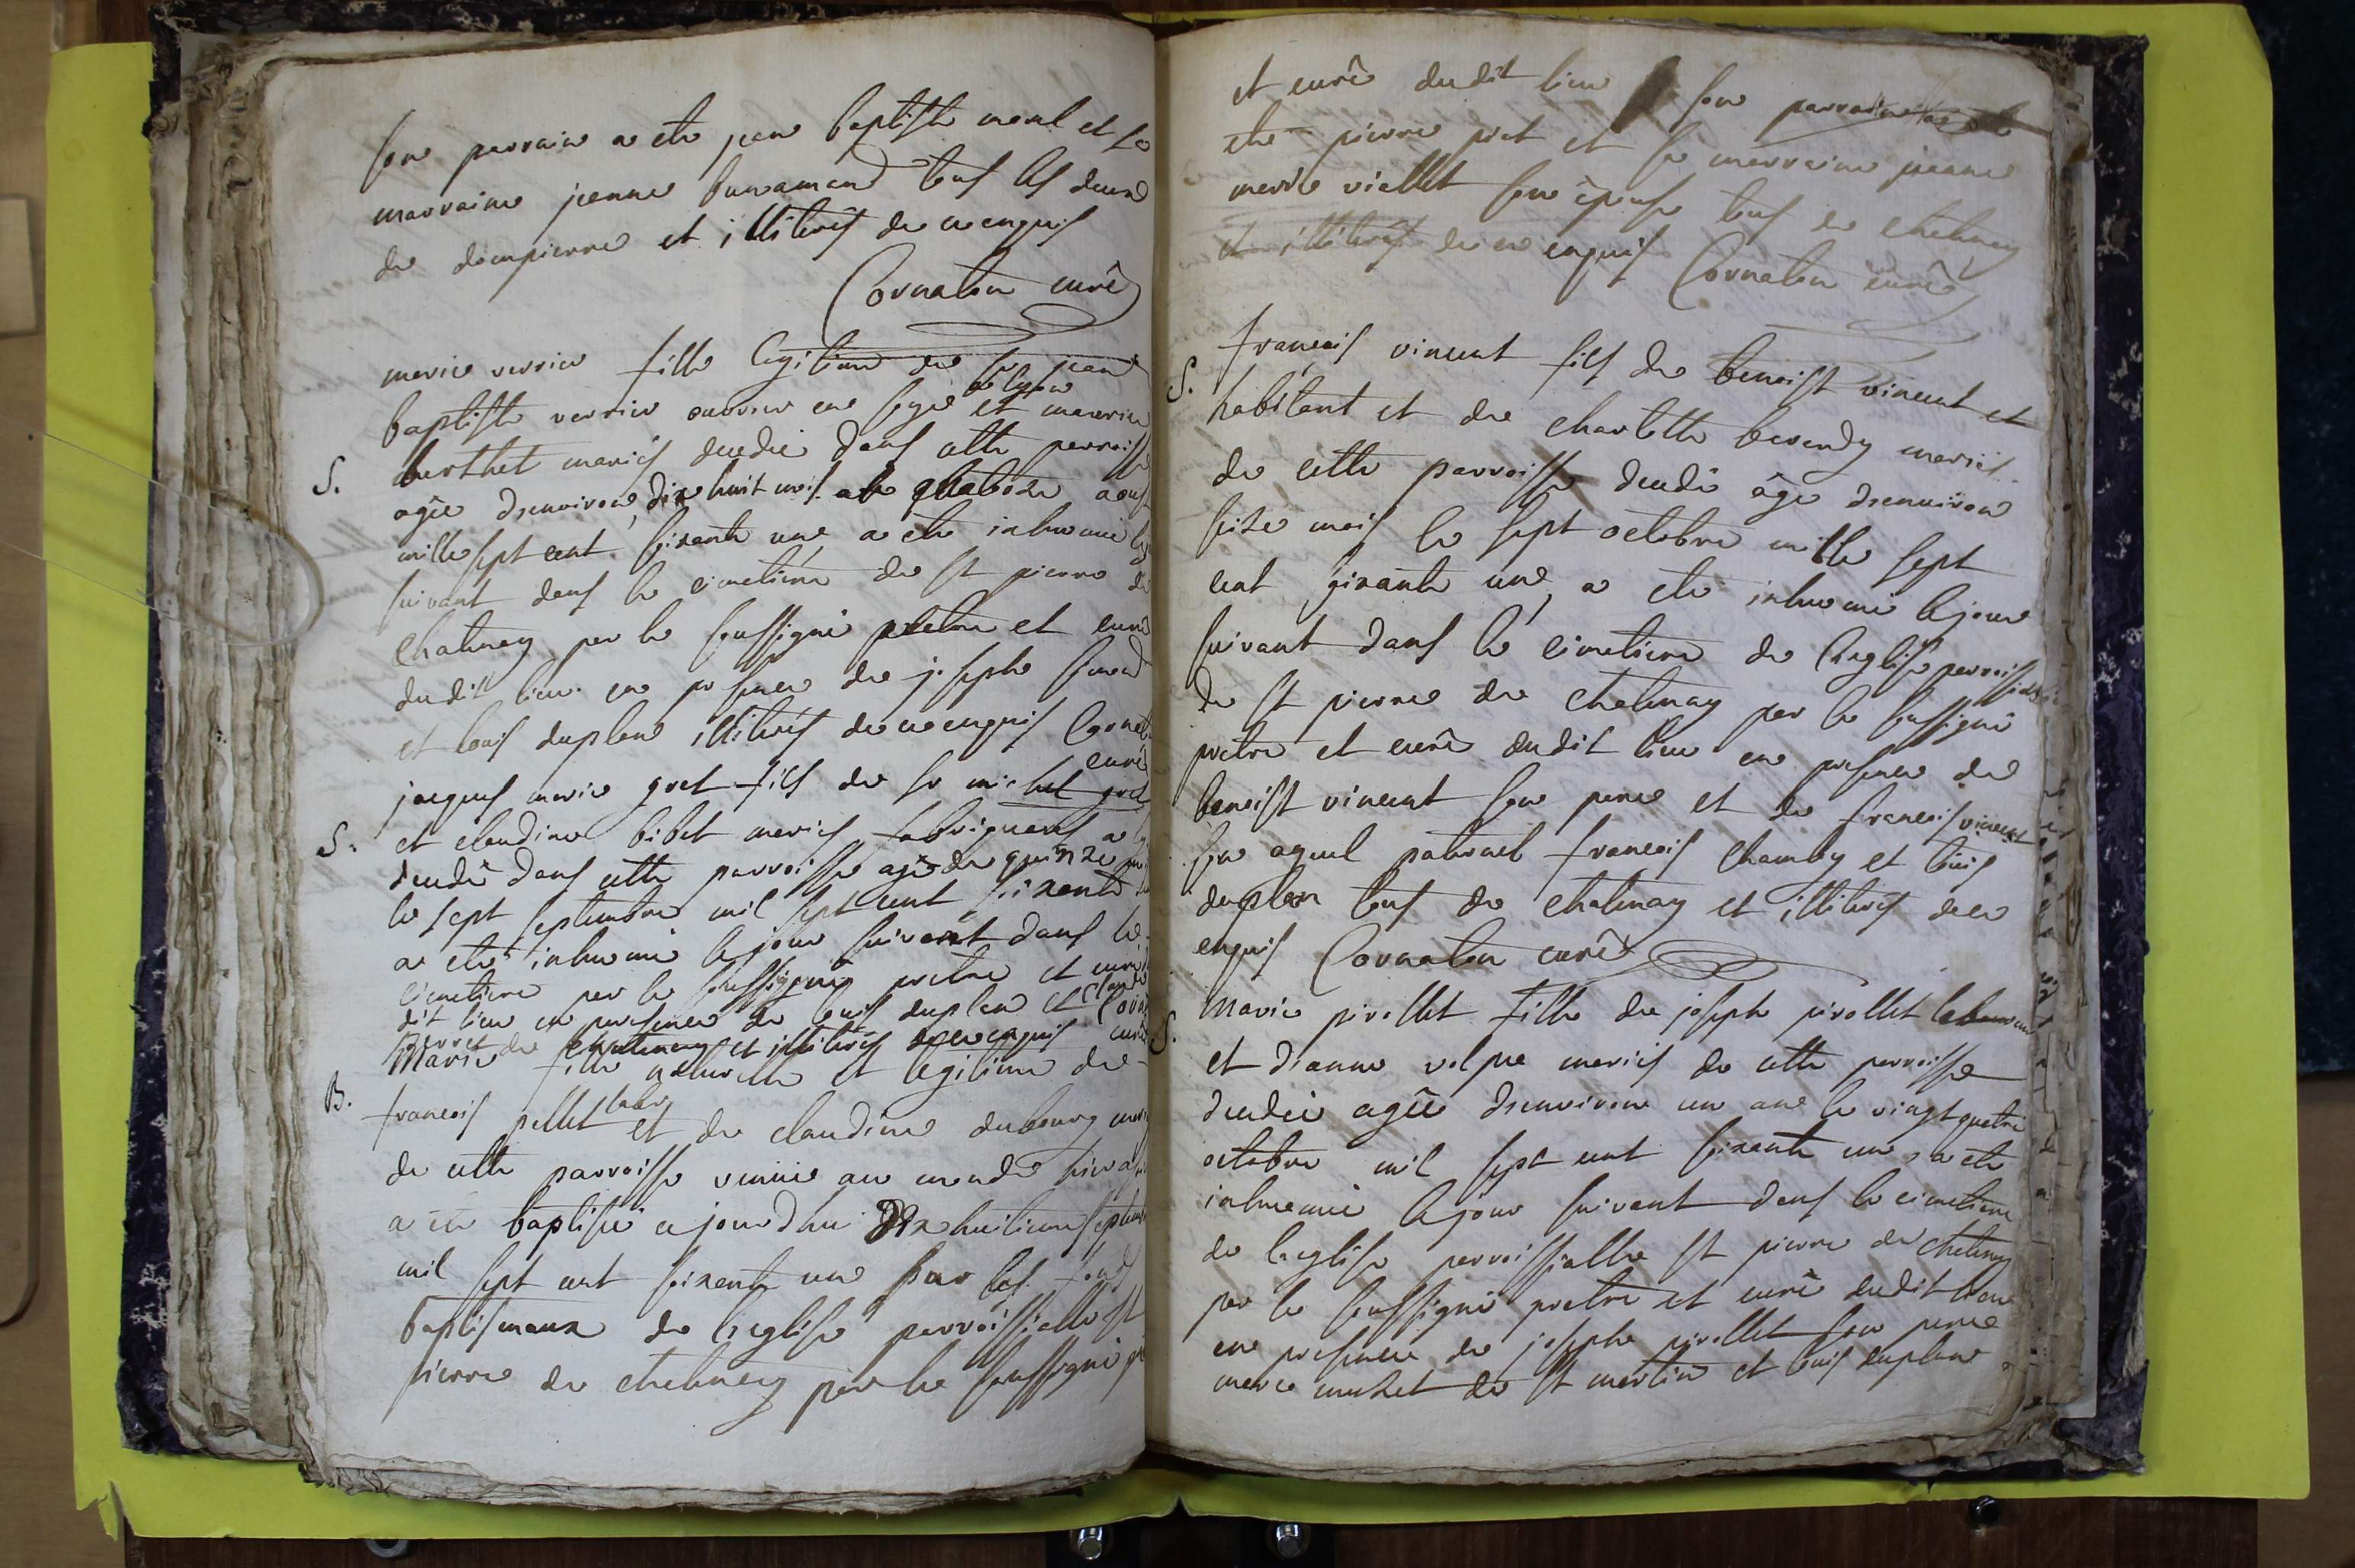 son parrain a ete jean baptiste morel et sa
marraine jeanne tous les deux
de dompierre et illiterés de ce enquis
Cornaton curé
marie verrier fille legitime de sr jean
a lyon
baptiste verrier ouvrier en soye et
S. berthet mariés decedée dans cette parroisse
agée denviron dix huit mois le quatorze aoust
mille sept cent sixante une a ete inhumée le
suivant dans le cimetiere de st pierre de
Chatenay par le soussigné pretre et curé
dudit lieu en presence de joseph
et louis duplan illiterés de ce enquis
curé
jacques marie gret fils de sr michel gret
S. et claudine bibet mariés fabriquants a
decedé dans cette parroisse agé de quinze
le sept septembre mil sept cent sixante
a eté inhumé le jour suivant dans le
cimetiere par le soussigné pretre et curé
dit lieu en presence de louis duplan et claude
perret de chatenay et illiterés de ce enquis curé
B. Marie fille naturelle et legitime de
francois pellet labr et de claudine dubourg
de cette parroisse venüe au monde hier
a eté baptisée ajourdhui dix huitieme septembre
mil sept cent sixante une sur les fonds
baptismaux de leglise parroissialle st
pierre de chatenay par le soussigné
et curé dudit lieu son parrain a
ete pierre piot et sa marraine jeanne
marie viallet son épouse tous de chatenay
et illiterés de ce enquis Cornaton curé
francois vincent fils de benoist vincent et
S. habitant et de charlotte mariés
de cette parroisse decedé âgé denviron
seize mois le sept octobre mille sept
cent sixante une a ete inhumé le jour
suivant dans le cimetiere de leglise parroissialle
de st pierre de chatenay par le soussigné
pretre et curé dudit lieu en presence de
benoist vincent son pere et de francois vincent
son ayeul paternel francois chamby et louis
duplan tous de chatenay et illiterés de ce
enquis Cornaton curé
S. Marie pirollet fille de joseph pirollet laboureur
et dianne volpe mariés de cette parroisse
decedée agée denviron un an le vingt quatre
octobre mil sept cent sixante une a ete
inhumée le jour suivant dans le cimetiere
de leglise parroissialle st pierre de chatenay
par le soussigné pretre et curé dudit lieu
en presence de joseph pirollet son pere
de st martin et louis duplan